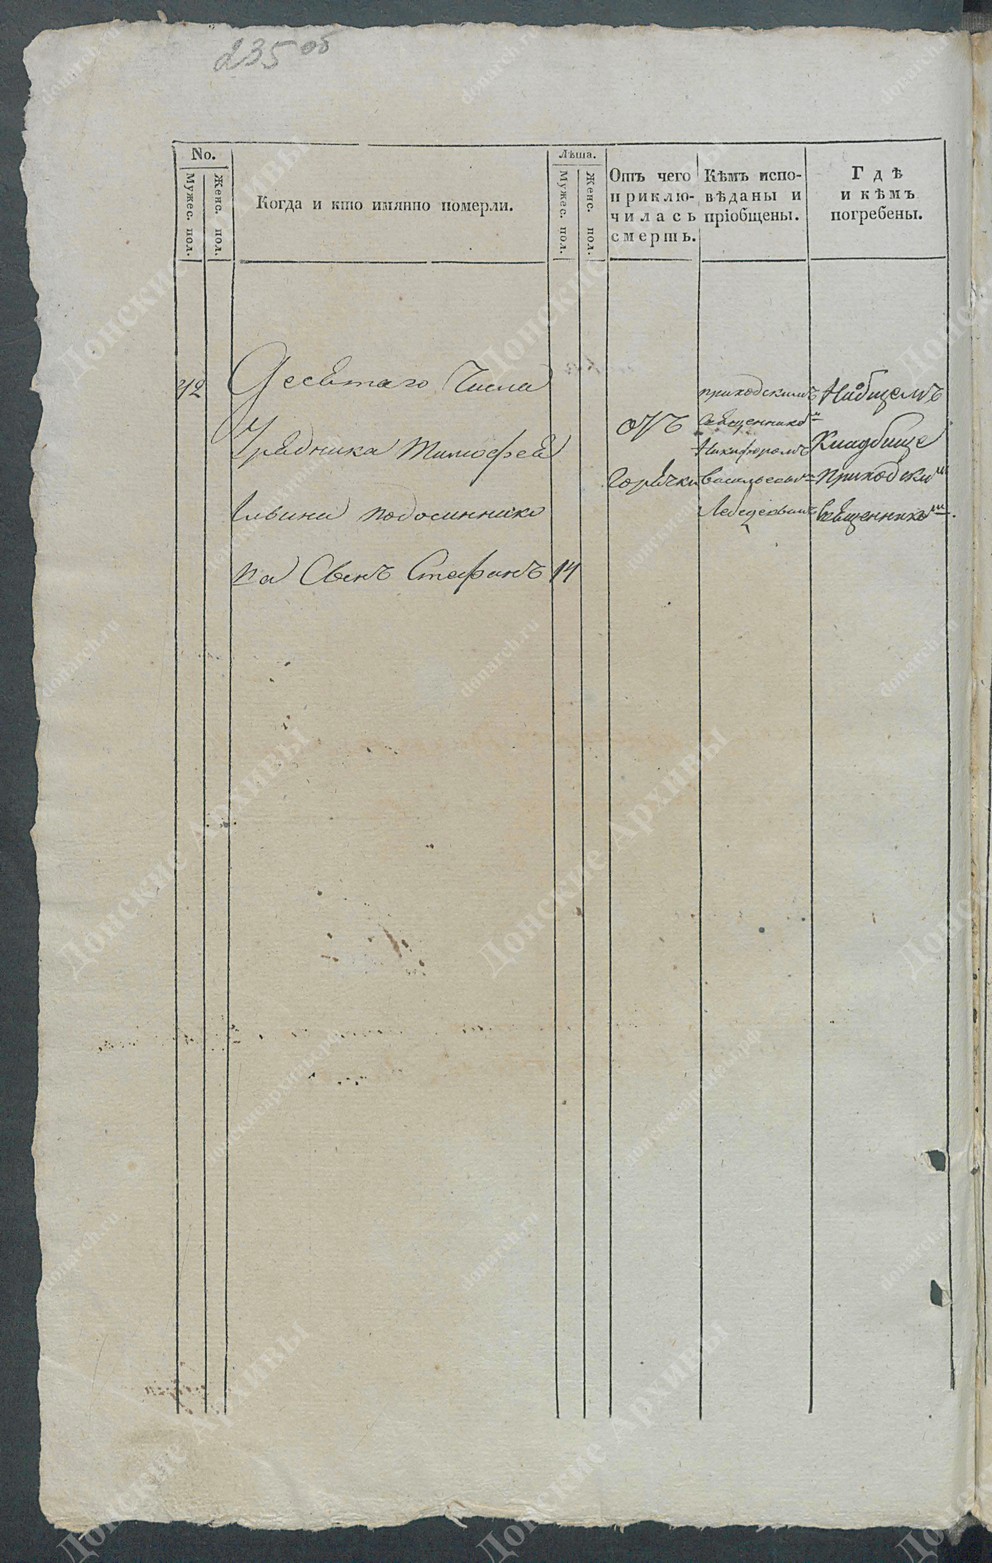 235 об
No.
Мужес. пол.
Женс. пол.
Когда и кто имянно померли.
Лѣта.
Мужес. пол.
Женс. пол.
Отъ чего
приклю-
чилась
смерть.
Кѣмъ испо-
вѣданы и
пріобщены.
Гдѣ
и кѣмъ
погребены.
42
Десятаго Числа
Урядника Тимофея
Савина
на Сынъ Стефанъ 14
отъ
горячки
приходскимъ
Священником
Никифоромъ
Васильевым
Лебедевымъ
На общемъ
Кладбище
приходским
священником.
Донские Архивы
donarch.ru
донскиеархивы.рф